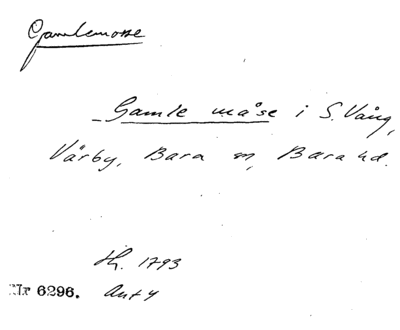 Gamlemosse
Gamle måse i S. Vång,
Vårby, Bara sn, Bara hd.
Hh. 1793
Nr 6296. Ant 4